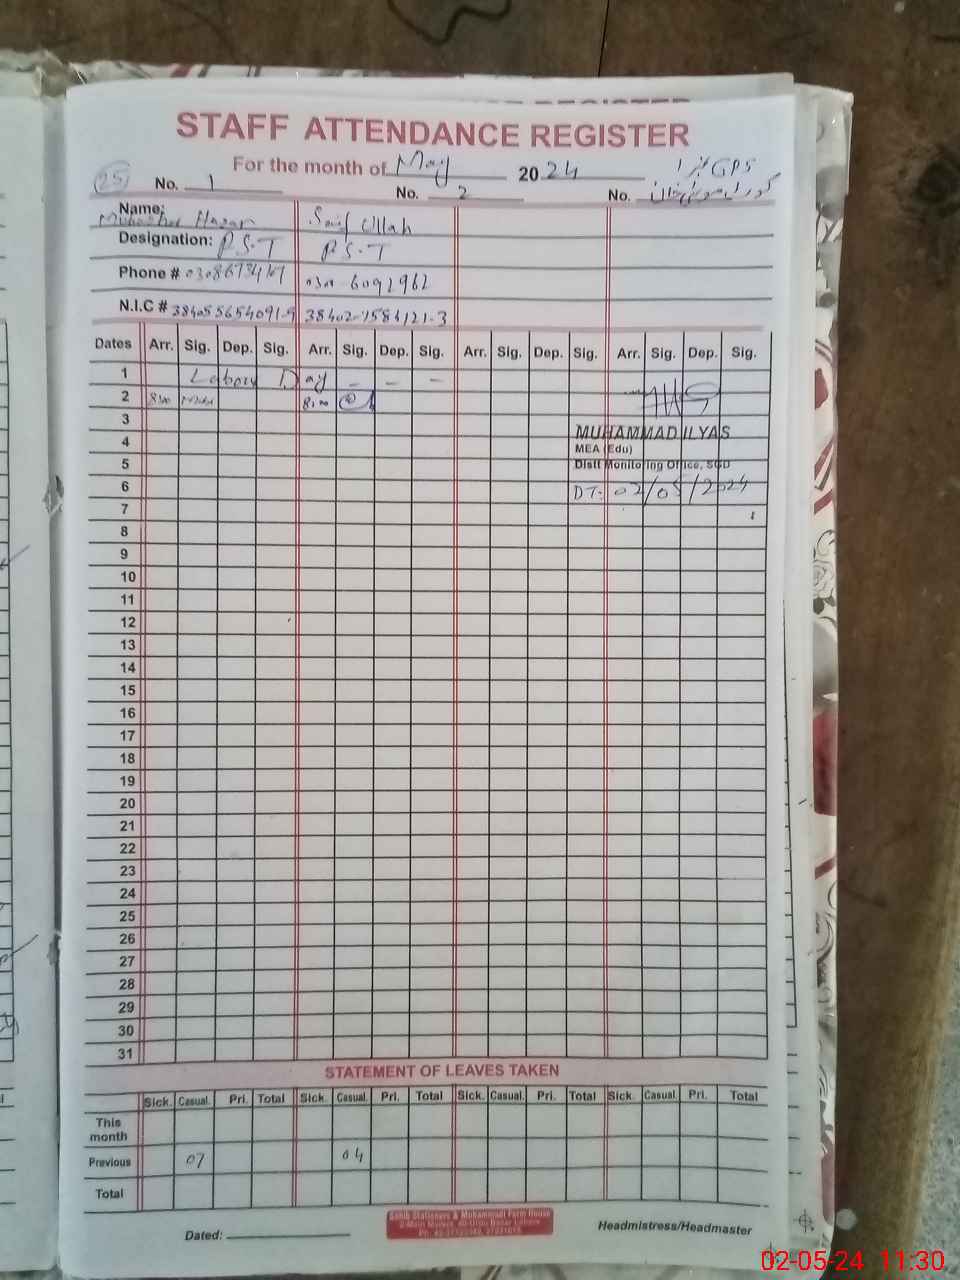 STAFF ATTENDANCE REGISTER
For the month of May 2024
GPS
25 No. 1 No. 2 No.
Name: Hasan Saif Ullah
Designation: P.S.T P.S.T
Phone # 0300-6092962
N.I.C #
Dates Arr. Sig. Dep. Sig. Arr. Sig. Dep. Sig. Arr. Sig. Dep. Sig. Arr. Sig. Dep. Sig.
1 Labour Day - - -
2 8:00 8:00
3
MUHAMMAD ILYAS
4
MEA (Edu)
5
Distt Monitoring Office, SGD
6 DT: 02/05/2024
7
8
9
10
11
12
13
14
15
16
17
18
19
20
21
22
23
24
25
26
27
28
29
30
31
STATEMENT OF LEAVES TAKEN
Sick. Casual. Pri. Total Sick. Casual. Pri. Total Sick. Casual. Pri. Total Sick. Casual. Pri. Total
This month
Previous 07 04
Total
Dated:
Headmistress/Headmaster
02-05-24 11:30